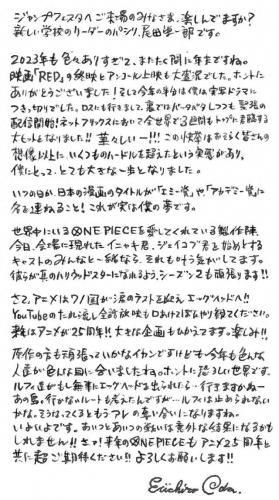 ジャンプフェスタへご来場のみなさま、楽しんでますか?
新しい学校のリーダーのパシリ、尾田栄一郎です。
2023年も色々ありすぎて、またたく間に年末ですね。
映画「RED」の終映とアンコール上映も大盛況でした。ホントに
ありがとうございました!そして今年の半分は僕は実写ドラマに
つきっ切りでした。ロスにも行きまして、裏ではバタバタしつつも堅張の
配信開始!ネットフリックスにおいて全世界で3週間もトップを君臨する
大ヒットとなりました!!華々しいー!!!この快挙はおそらく皆さんの
想像以上に、いくつものハードルを超えたという実感があり、
僕にとって、とても大きな一年となりました。
いつの日か、日本の漫画のタイトルが「エミー賞」や「アカデミー賞」に
名を連ねること!これが実は僕の夢です。
世界中にいるONE PIECEを愛してくれている製作陣、
今日、会場に現れたイニャキ君、ジェイコブ君を始めとする
キャストのみんなと一緒なら、それも叶う気がしてます。
彼らが真のハリウッドスターになれるよう、シーズン2も頑張ります!!
さて、アニメはワノ国が涙のラストを迎え、エッグヘッドへ!!
YouTubeのたれ流し全話放映も口あけてぼんやり観てください。
来年はアニメが25周年!!大きな企画もひかえてます。楽しみ!!
原作の方も頑張っていかなイカンですけども今年も色んな
人達が色んな目に合いましたね。ホントに恐ろしい世界です。
ルフィ達がもし無事にエッグヘッドを出られたら…行きますかねー
あの島。行かないルートも考えたんですが…ルフィは止められない
かな。そうなってくるともうフレの奪い合いになりますね。
いよいよです。あいつとあいつの救いは意外な結果になるかも
しれません!!さァ!来年のONE PIECEもアニメ25周年と
共に超ご期待ください!!よろしくお願いします!!
Eiichiro Oda.